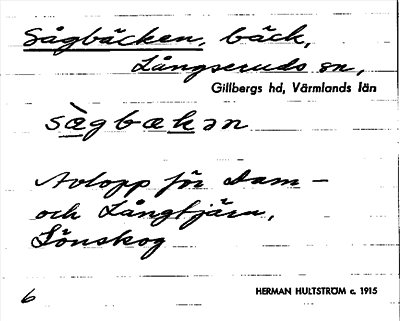 Sågbäcken, bäck,
Långseruds sn,
Gillbergs hd, Värmlands län
sàgbækən
Avlopp för Dam-
och Långtjärn,
Lönskog
6
HERMAN HULTSTRÖM c. 1915